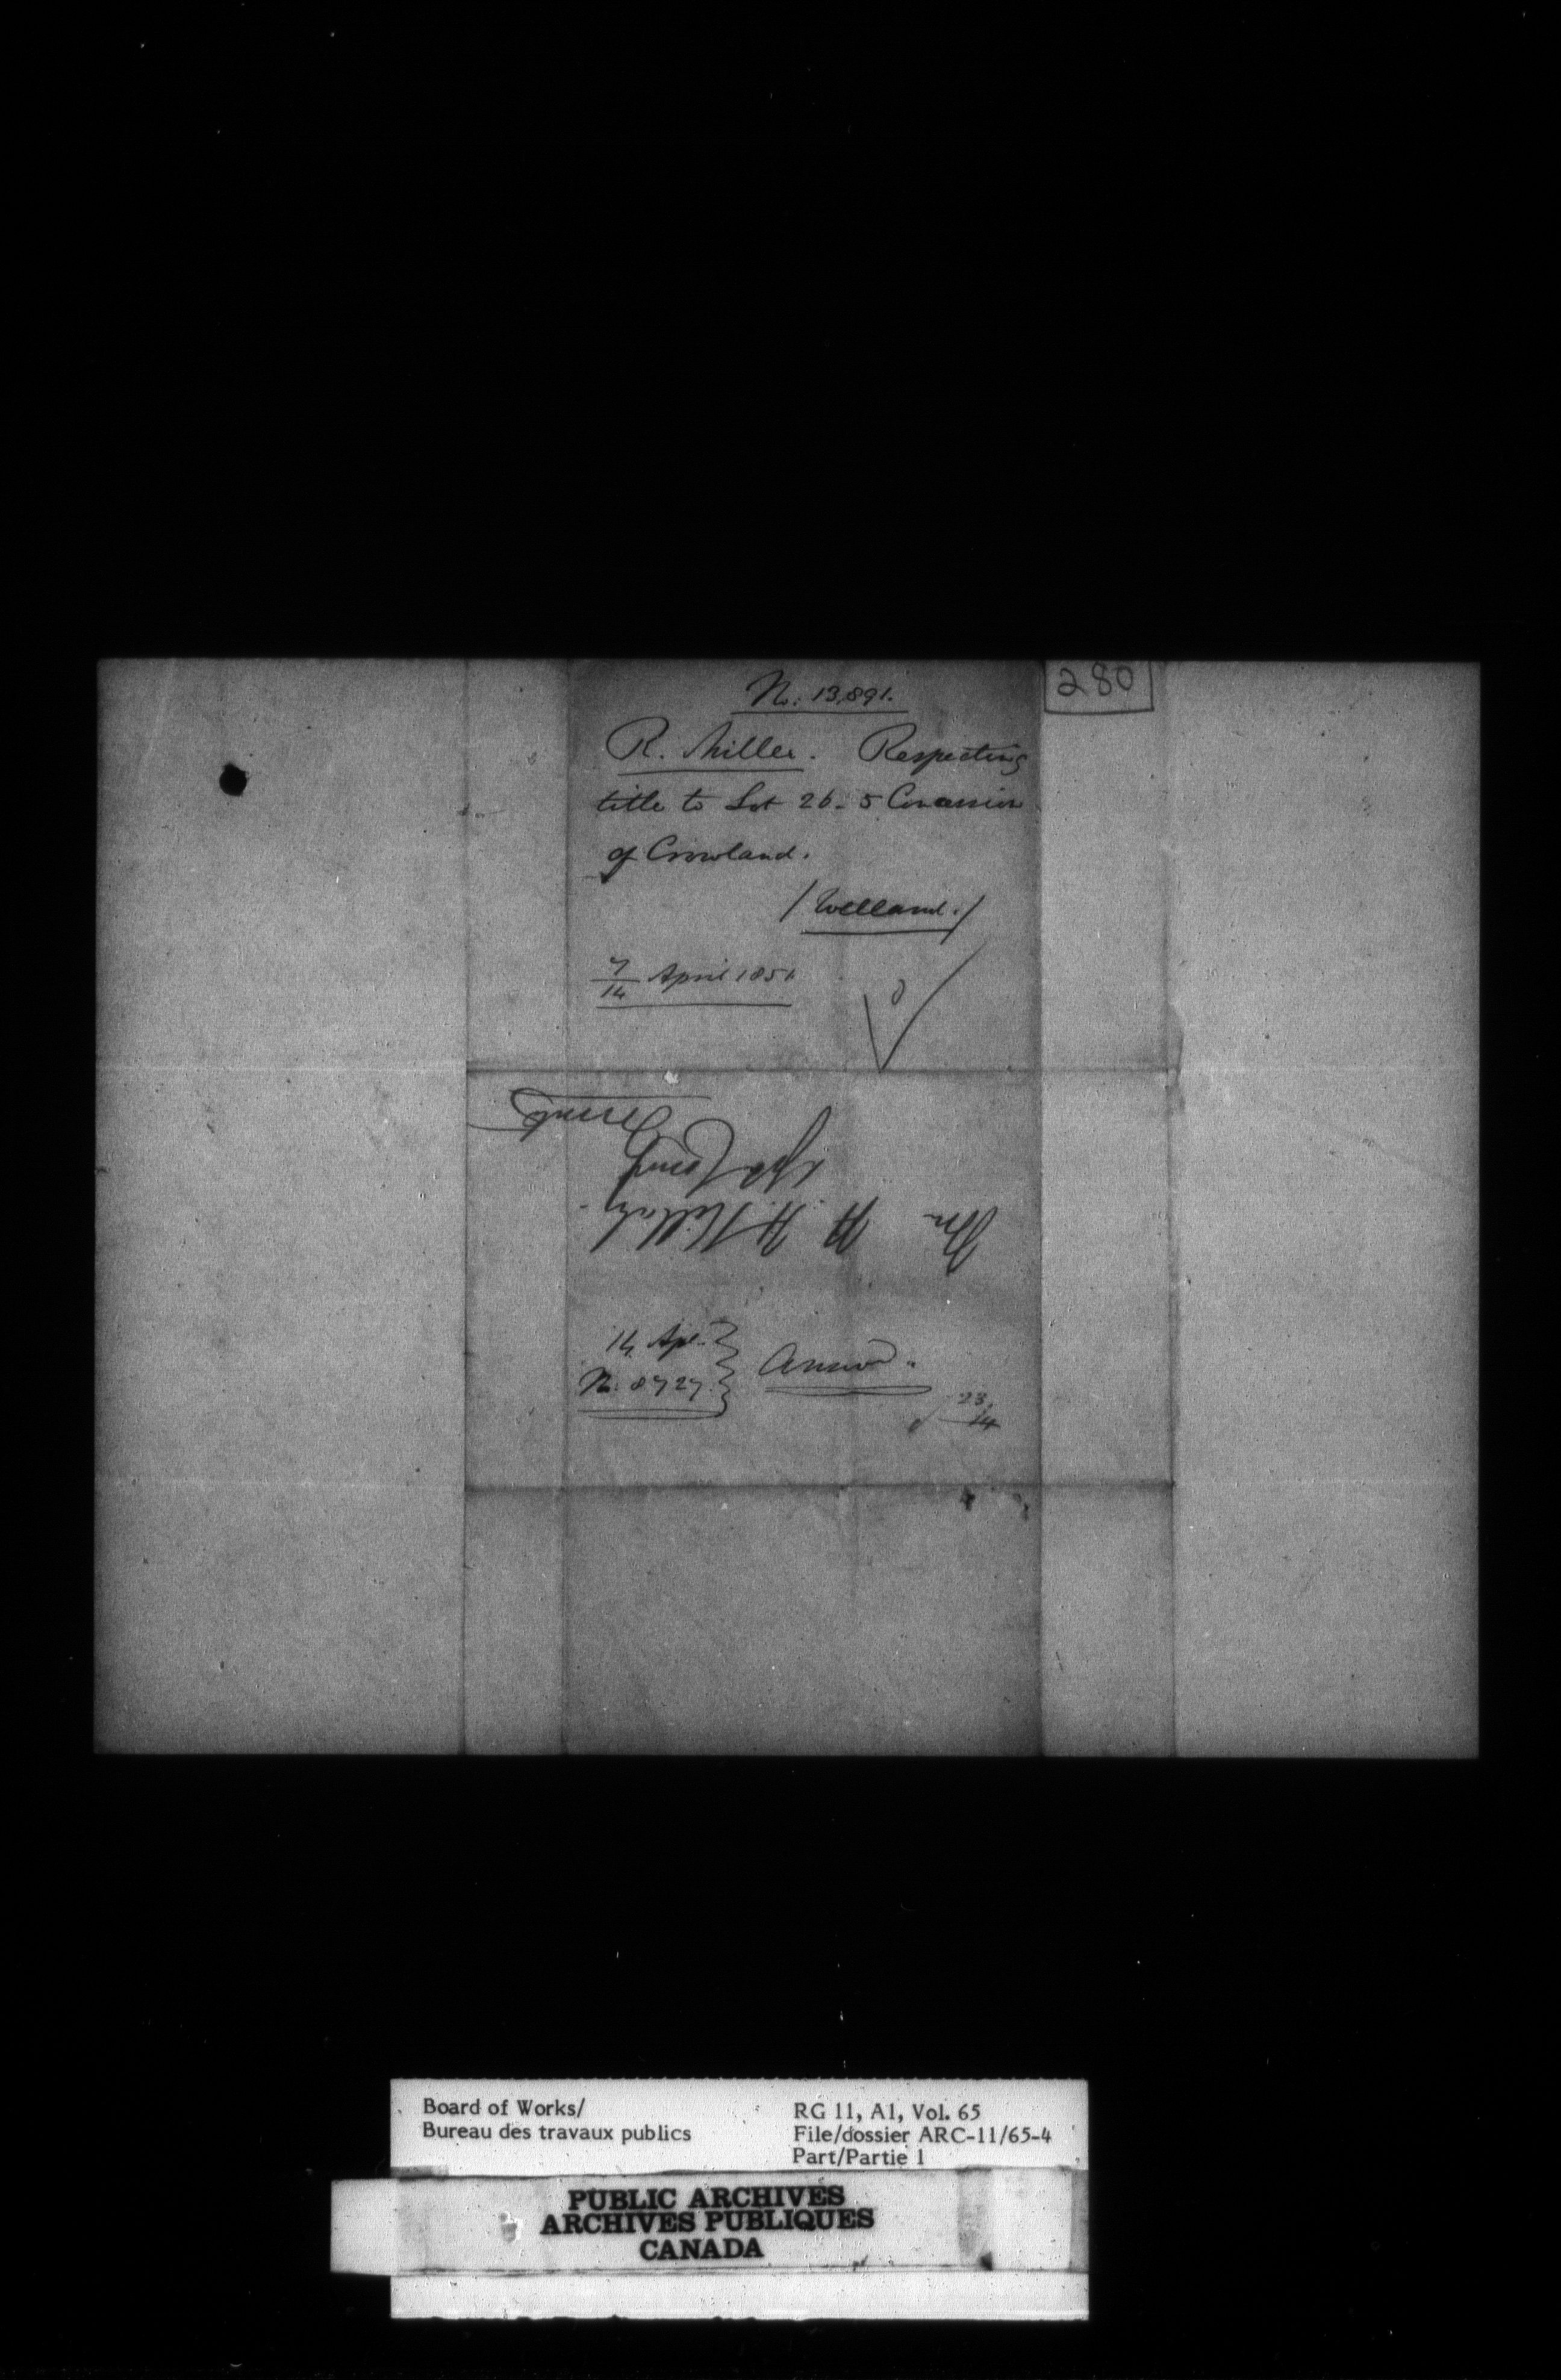 280
No. 13,891.
R. Miller. Respecting
title to Lot 26 - 5 Concession
of Crowland.
/Welland./
7/14 April 1851
Mr H. H. Killaly
14 Apl.
No. 8727
Answd.
23/14
Board of Works/
Bureau des travaux publics
RG 11, A1, Vol. 65
File/dossier ARC-11/65-4
Part/Partie 1
PUBLIC ARCHIVES
ARCHIVES PUBLIQUES
CANADA